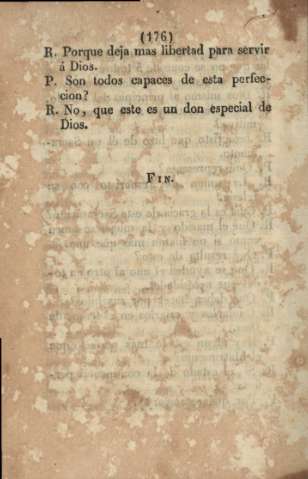 (176)
R. Porque deja mas libertad para servir
á Dios.
P. Son todos capaces de esta perfec-
cion?
R. No, que este es un don especial de
Dios.
FIN.